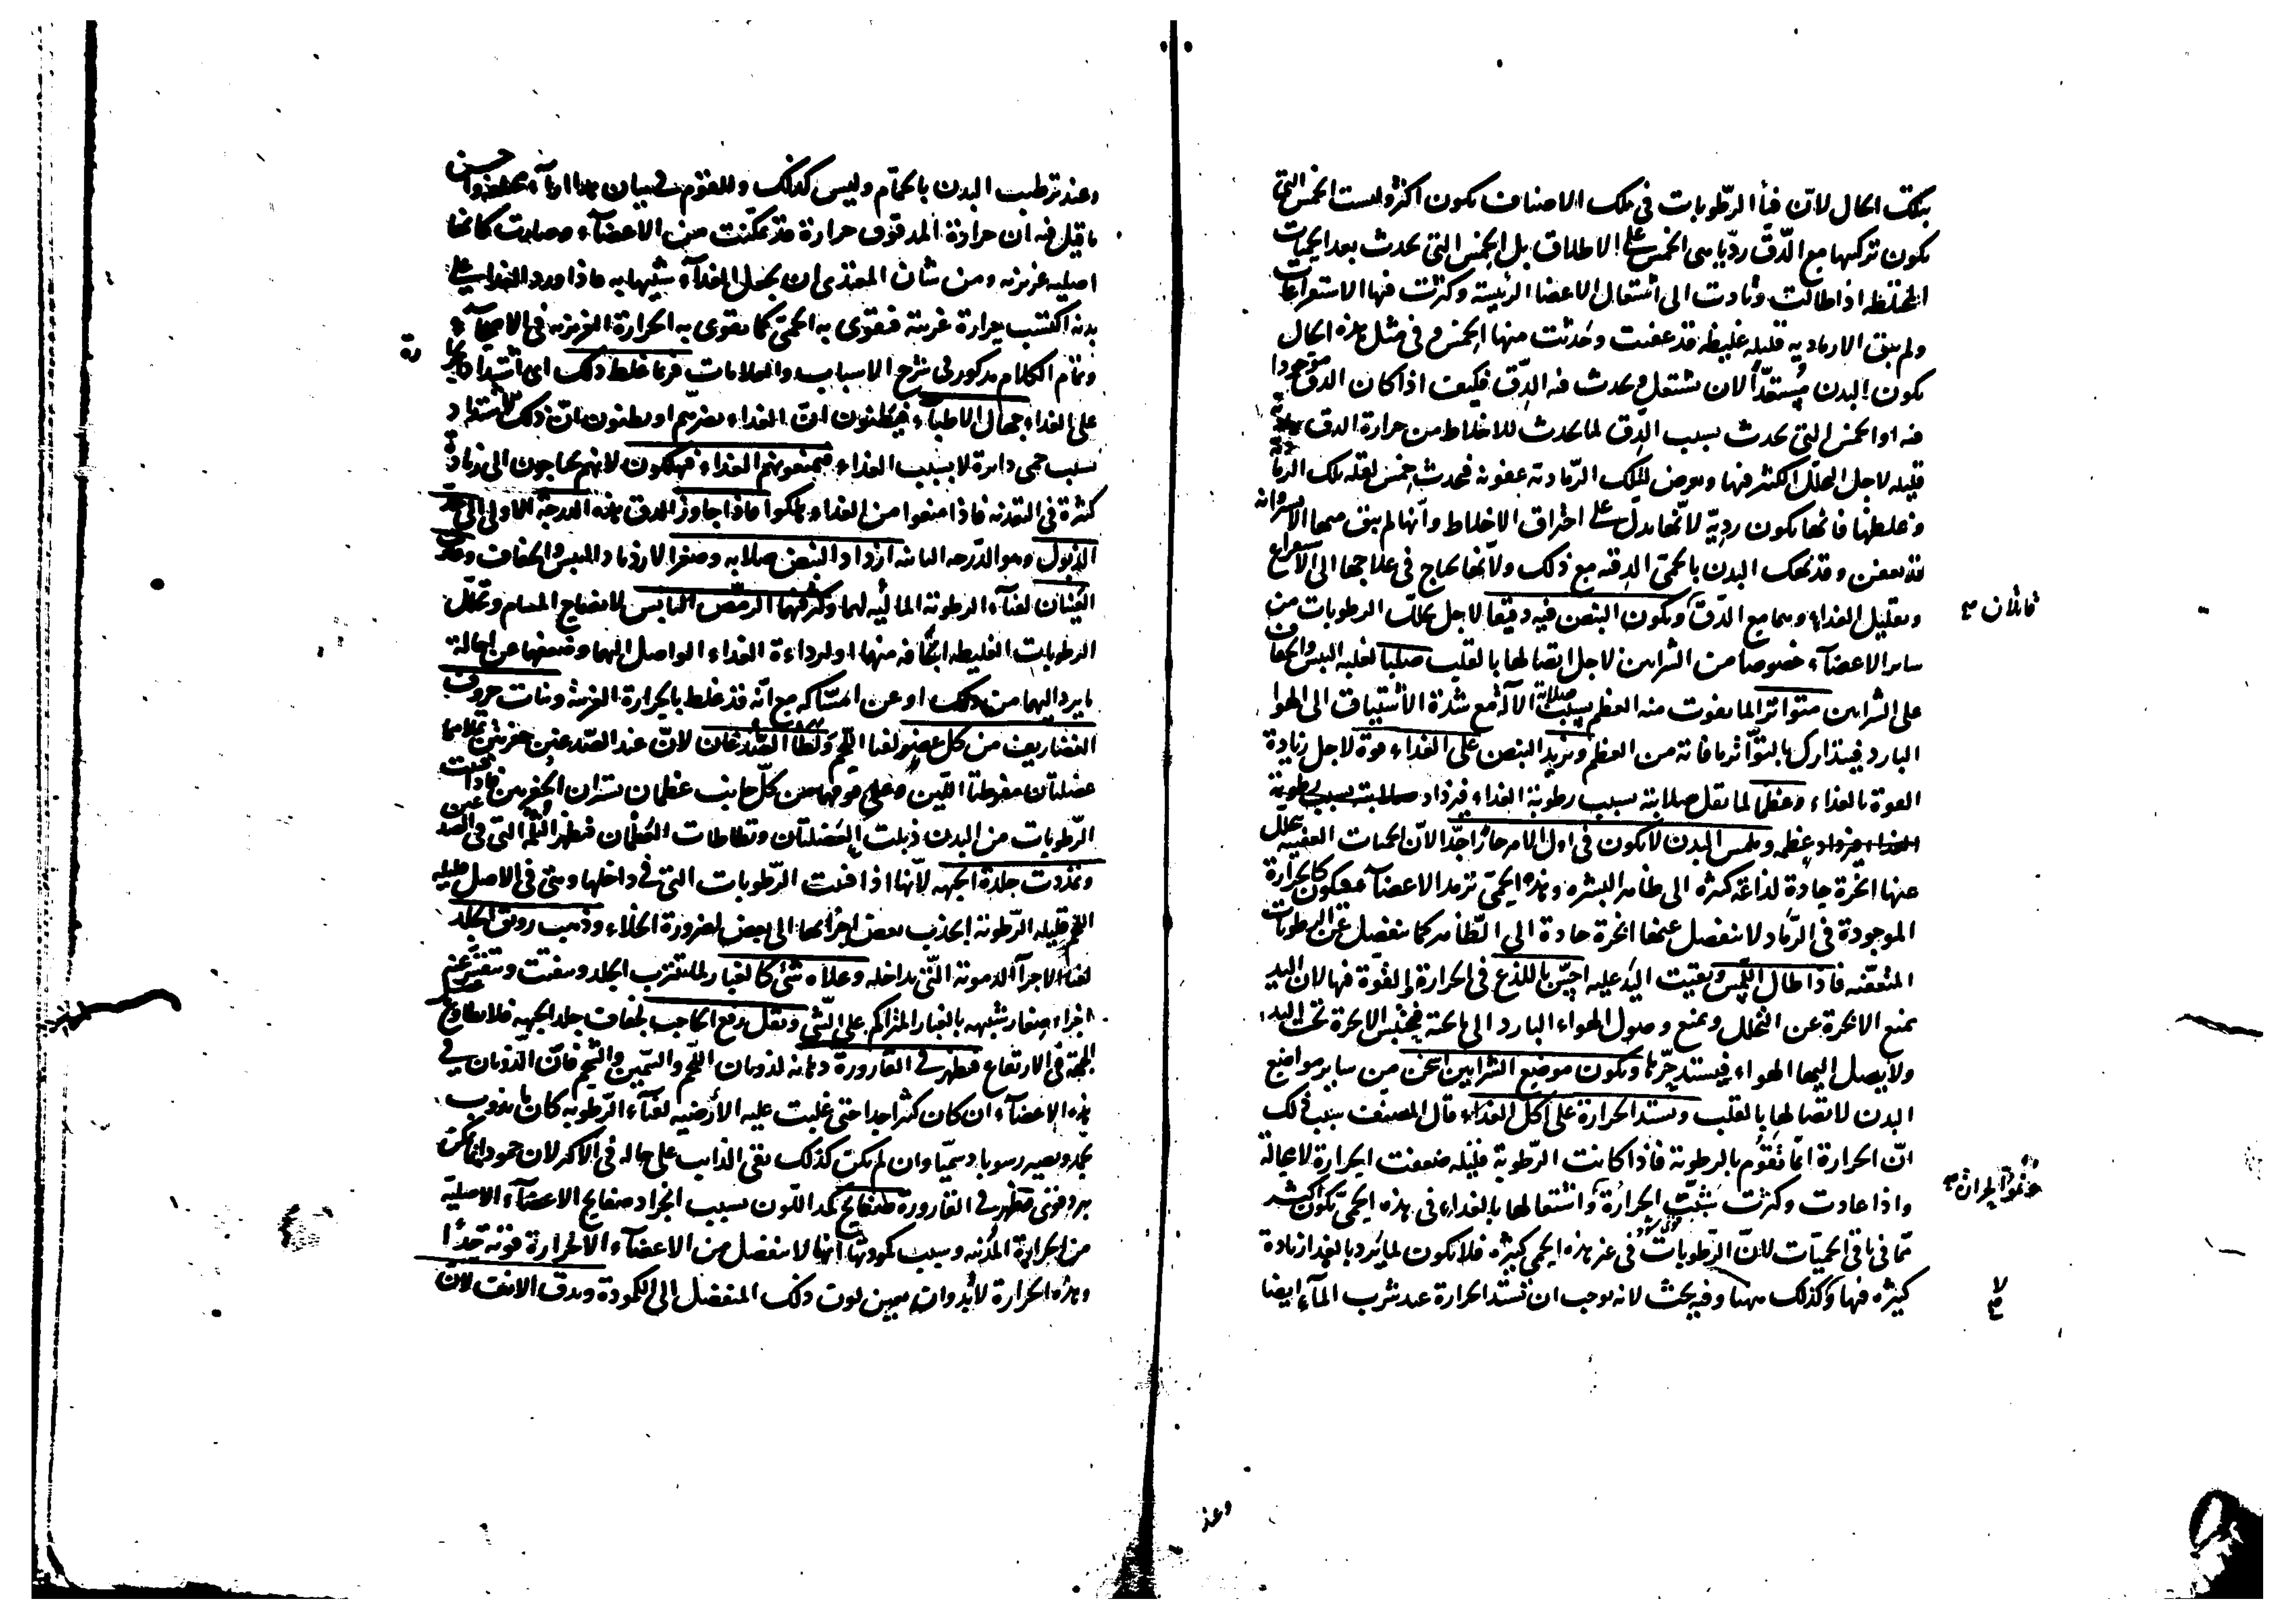 بتلك الحال لانّ فنأ الرّطوبات فى تلك الاصناف يكون اكثر وليست الخمس التى
يكون تركبها مع الدّق ردّيا هى الخمس على الاطلاق بل الخمس التى تحدث بعد الحميات
المختلطه اذا طالت وتادت الى اشتعال الاعضا الرئيسة وكثرت فيها الاستفراغات
ولم يبق الا رماديه قليله غليظه قد عفنت وحدثت منها الخمس وفى مثل هذه الحال
يكون البدن مستعدّا لان يشتعل ويحدث فيه الدّق فكيف اذا كان الدق موجودا
فيه او الخمس التى تحدث بسبب الدّق لما يحدث للاخلاط من حرارة الدق رمادية
قليله لاجل التحلل الكثير فيها ويعرض لتلك الرّمادية عفونه فتحدث خمس لقله تلك الرمادية
وغلظها فانها يكون رديّه لانّها يدل على احتراق الاخلاط وانّها لم يبق منها الا
قد تعفن وقد نهك البدن بالحمّى الدقيه مع ذلك ولانّها يحتاج فى علاجها الى الاستفراغ
وتقليل الغذاء وهما مع الدّق ويكون النبض فيه دقيقا لاجل تحلل الرطوبات من
ساير الاعضآء خصوصا من الشرايين لاجل اتصالها بالقلب صلبا لغلبه اليبس والجفاف
على الشرايين متواترا لما يفوت منه العظم بسبب صلابة الآلة مع شدة الاشتياق الى الهوا
البارد فيتدارك بالتواتر ما فاته من العظم ويزيد النبض على الغذاء قوة لاجل زيادة
القوة بالغذاء وعظما لما يقل صلابته بسبب رطوبة الغذاء فيزداد صلابته بسبب رطوبة
الغذاء فيزداد عظمه وملمس البدن لا يكون فى اول الامر حارّا جدّا لانّ الحميات العفنيه يتحلل
عنها ابخرة حادة لذاعة كثيره الى ظاهر البشره وهذه الحمى ترمد الاعضآء فيكون كالحرارة
الموجودة فى الرّماد لا ينفصل عنها ابخرة حادة الى الظاهر كما ينفصل عن الرطوبات
المتعفّنه فاذا طال اللّمس وبقيت اليد عليه احسّ باللذع فى الحرارة والقوّة فيها لان اليد
يمنع الابخرة عن التحلل ويمنع وصول الهواء البارد الى ما تحته فيحتبس الابخرة تحت اليد
ولا يصل اليها الهواء فيستد حرّها ويكون موضع الشرايين اسخن من ساير مواضع
البدن لاتصالها بالقلب وتستد الحرارة على اكل الغذاء قال المصنف سبب ذلك
انّ الحرارة انّما تقوم بالرطوبة فاذا كانت الرّطوبة قليله ضعفت الحرارة لا محالة
واذا عادت وكثرت تشبّثت الحرارة واشتعالها بالغذاء فى هذه الحمى يكون اكثر
ممّا فى باقى الحميّات لانّ الرّطوبات فى غير هذه الحمى كثيره فلا يكون لما يرد بالغذا زيادة
كثيره فيها وكذلك هنا وفيه بحث لانه يوجب ان تشتد الحرارة عند شرب المآء ايضا
وعند
وعند ترطيب البدن بالحمّام وليس كذلك وللقوم فى بيان هذا احسن
ما قيل فيه ان حرارة المدقوق حرارة قد تمكنت من الاعضآء وصارت كانها
اصليه غريزيه ومن شان المغتذى ان يجعل الغذآء شبيها به فاذا ورد الغذا على
بدنه اكتسب حرارة غريبة فيقوى به الحمى كما يقوى به الحرارة الغريزيه فى الاصحآء
وتمام الكلام مذكور فى شرح الاسباب والعلامات فربما غلط ذلك اى اشتداد الحرارة
على الغذاء جهال الاطبآء فيظنون انّ الغذاء يضرّهم او يظنون انّ ذلك الاشتداد
بسبب حمى دايرة لا بسبب الغذاء فيمنعونهم الغذاء فيهلكون لانهم يحتاجون الى زيادة
كثرة فى التغذيه فاذا منعوا من الغذا هلكوا فاذا جاوز الدق هذه الدرجة الاولى الى
الذبول وهو الدّرجه الثانيه ازداد النبض صلابه وصغرا لازدياد اليبس والجفاف
العينان لفنآء الرطوبة المائيه لهما وكثر فيهما الرمص اليابس
الرطوبات الغليظه الجافه منهما او لرداءة الغذاء الواصل اليهما وضعفهما عن احالة
ما يرد اليهما من ذلك او عن امساكه مع انّه قد غلظ بالحرارة الغريبة ونبات حروف
الغضاريف من كل عضو لفنا اللحم ولطا الصّدغان لانّ عند الصّدغين حفرتين
عضلتان وعلى فوقهما من كلّ جانب عظمان يستران الحفرتين فاذا فنيت
الرّطوبات من البدن ذبلت العضلتان وتطاطات العظمان فتظهر الثلم التى فى الصدغين
وتمددت جلدة الجبهه لانّها اذا فنيت الرّطوبات التى فى داخلها وهى فى الاصل قليله
اللحم قليله الرّطوبة انجذب بعض اجزائها الى بعض لضرورة الخلاء وذهب رونق الجلد
لفنا الاجزآ الدموية الّتى بداخله وعلاه شئ كالغبار لما يتترّب الجلد ويتفتت ويتقشر عنه
اجزاء صغار شبيهه بالغبار المتراكم على الشّى وثقل رفع الحاجب لجفاف جلد الجبهه فلا يطاوع
فى الارتفاع فتظهر فى القارورة دهانة لذوبان اللّحم والسّمين والشحم فانّ الذوبان فى
هذه الاعضآء ان كان كثيرا جدا حتى غلبت عليه الارضيه لفنآء الرّطوبه كان ما يذوب
يجمد ويصير رسوبا دسميّا وان لم يكن كذلك بقى الذايب على حاله فى الاكثر لان
برد قوى فتظهر فى القارورة صفايح كمد اللّون بسبب انجراد صفايح الاعضآء الاصليّه
من الحرارة المذيبه وسبب كمودتها انّها لا ينفصل من الاعضآء الا لحرارة قويّه جدّا
وهذه الحرارة لا بد وان يغير لون ذلك المنفصل الى الكمودة ويدق الانف لان